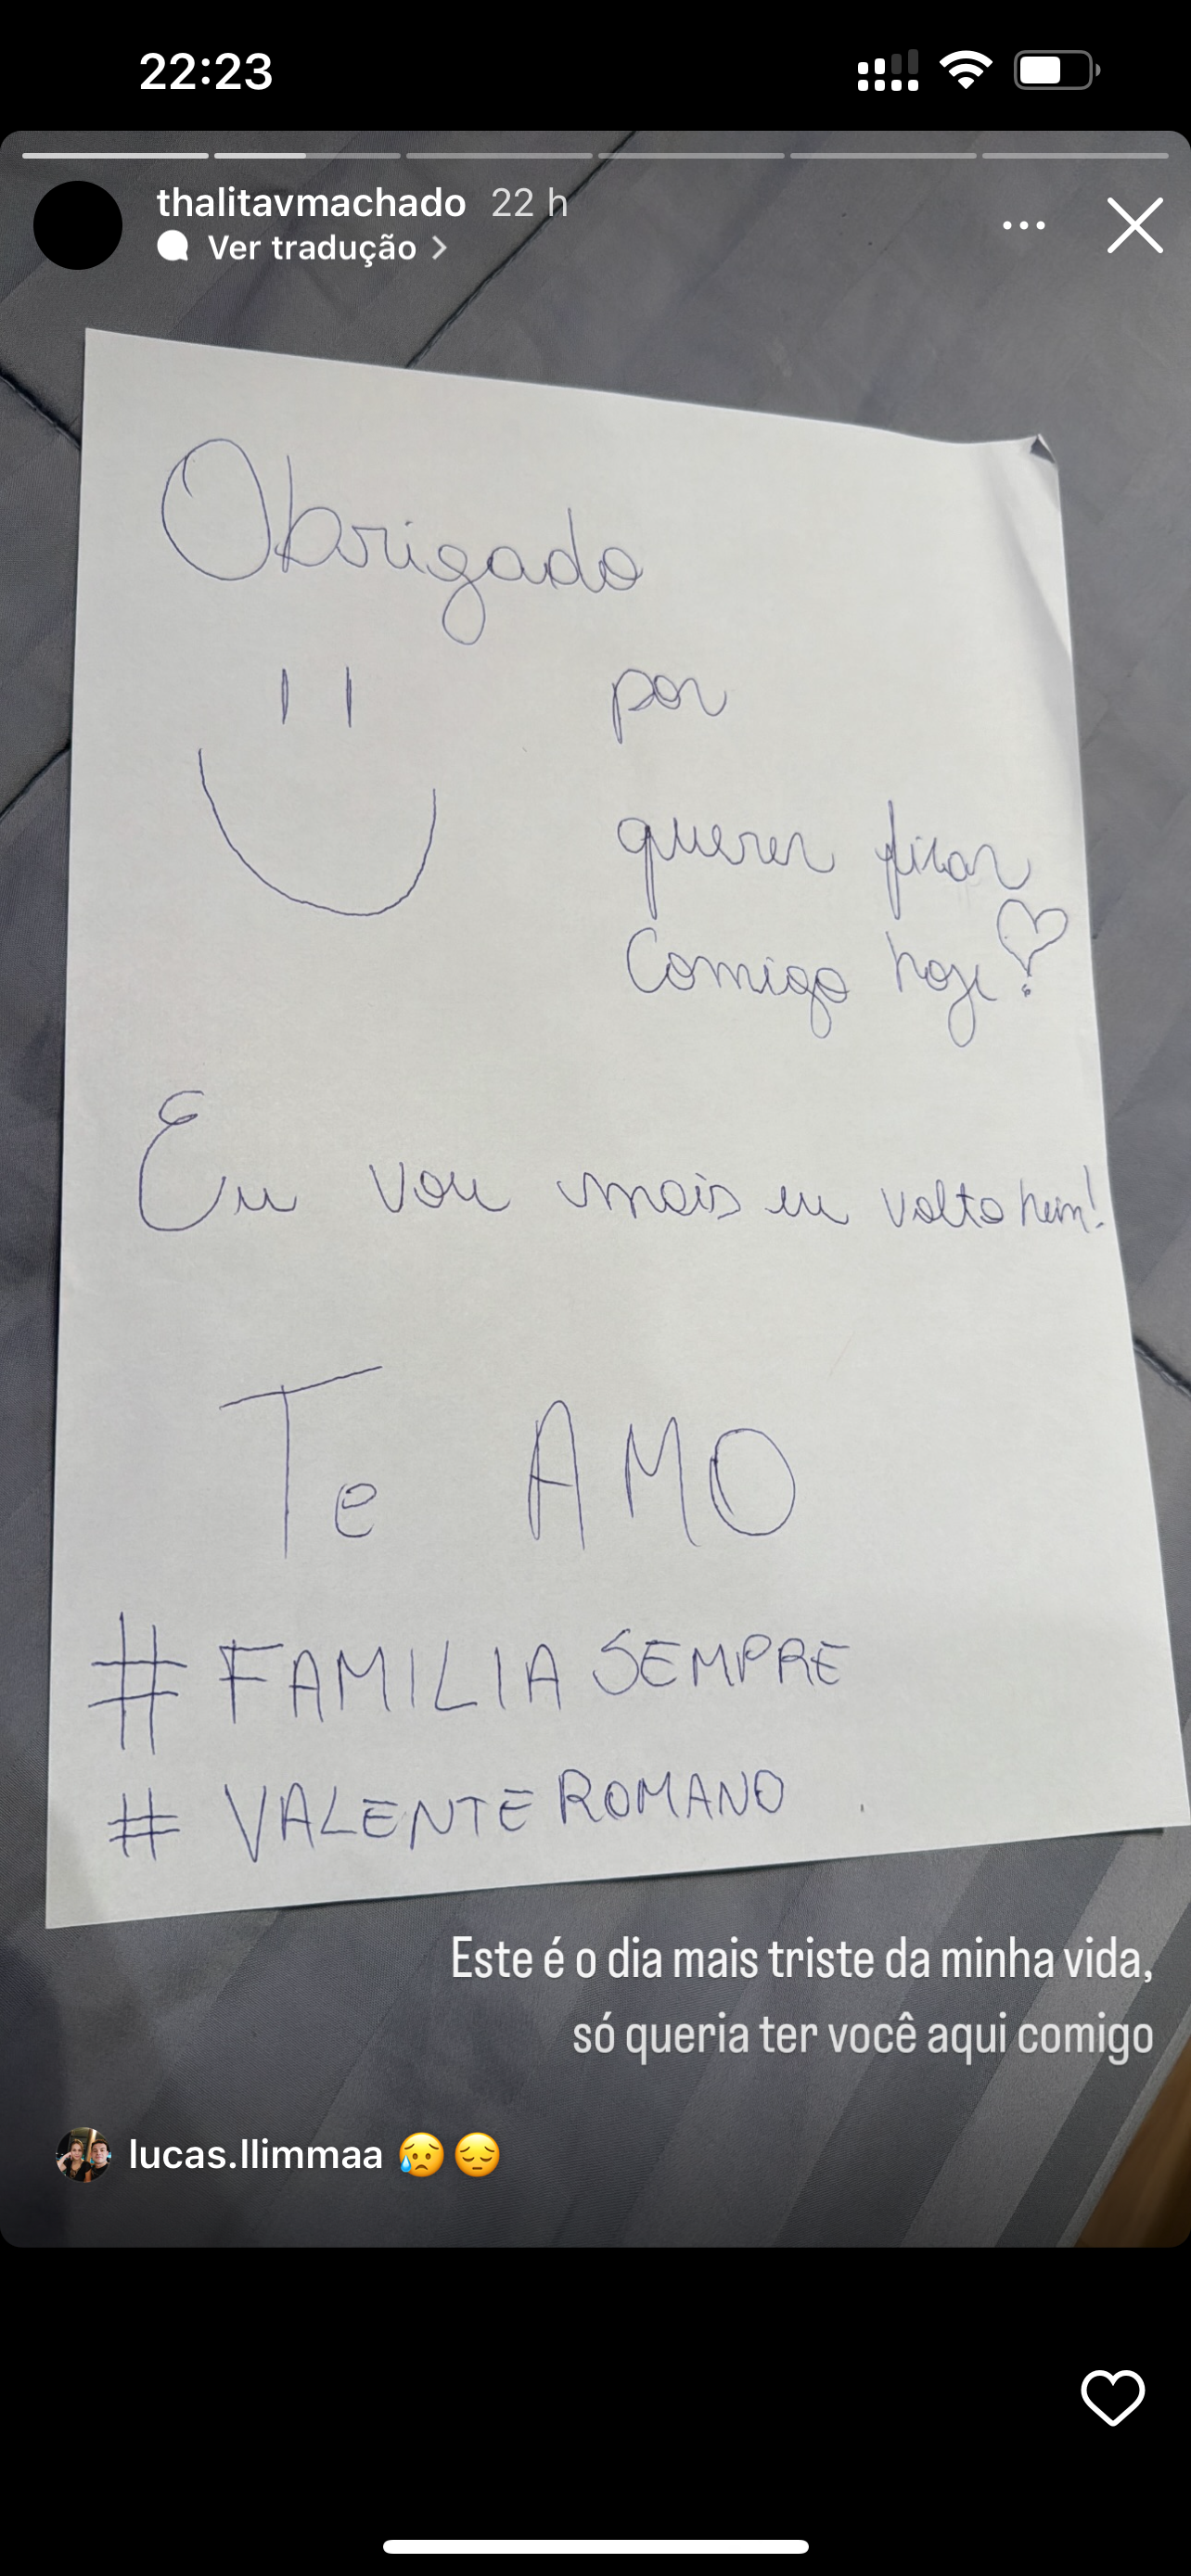 22:23
thalitavmachado 22 h
Ver tradução
Obrigado
por
querer ficar
Comigo hoje!
Eu vou mais eu volto hein!
Te AMO
# FAMILIA SEMPRE
# VALENTE ROMANO
Este é o dia mais triste da minha vida,
só queria ter você aqui comigo
lucas.llimmaa 😥😔